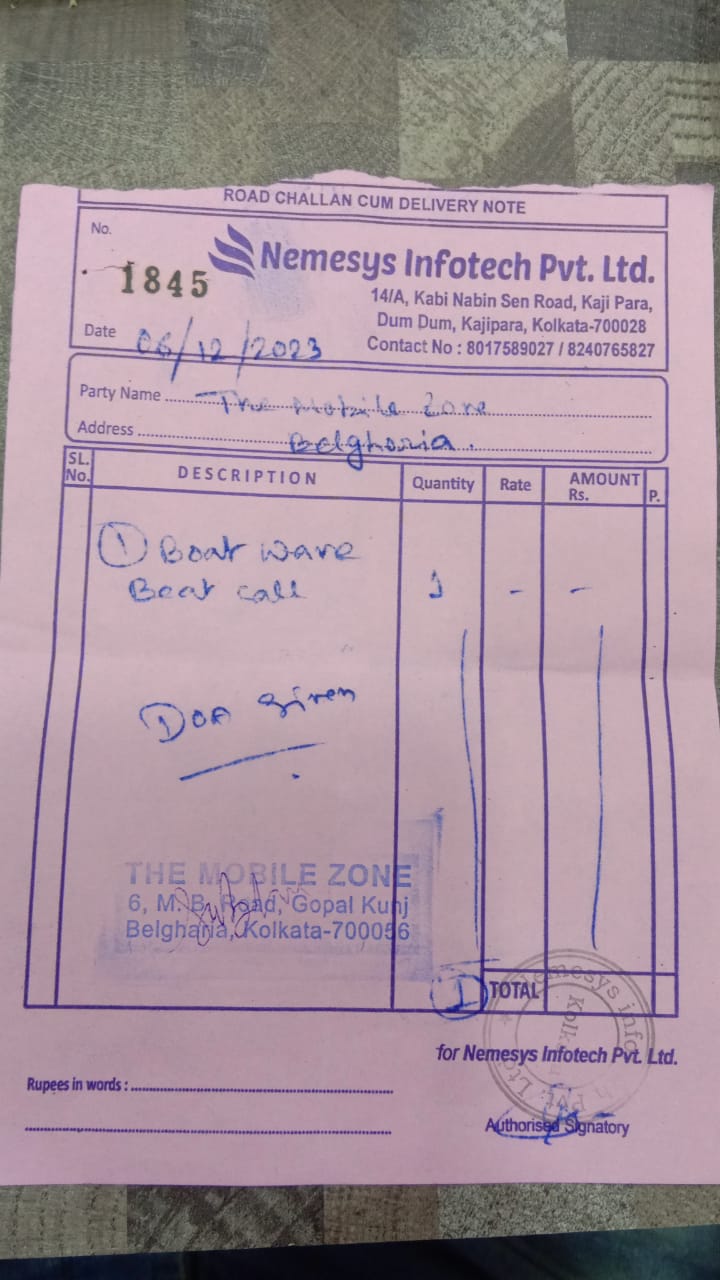 ROAD CHALLAN CUM DELIVERY NOTE
No.
1845
Nemesys Infotech Pvt. Ltd.
14/A, Kabi Nabin Sen Road, Kaji Para,
Dum Dum, Kajipara, Kolkata-700028
Contact No : 8017589027 / 8240765827
Date 06/12/2023
Party Name The Mobile Zone
Address Belghoria.
SL. No. DESCRIPTION Quantity Rate AMOUNT Rs. P.
① Boat wave
Beat call 1 - -
DOA given
THE MOBILE ZONE
6, M. B. Road, Gopal Kunj
Belgharia, Kolkata-700056
1 TOTAL
for Nemesys Infotech Pvt. Ltd.
Rupees in words :
Authorised Signatory